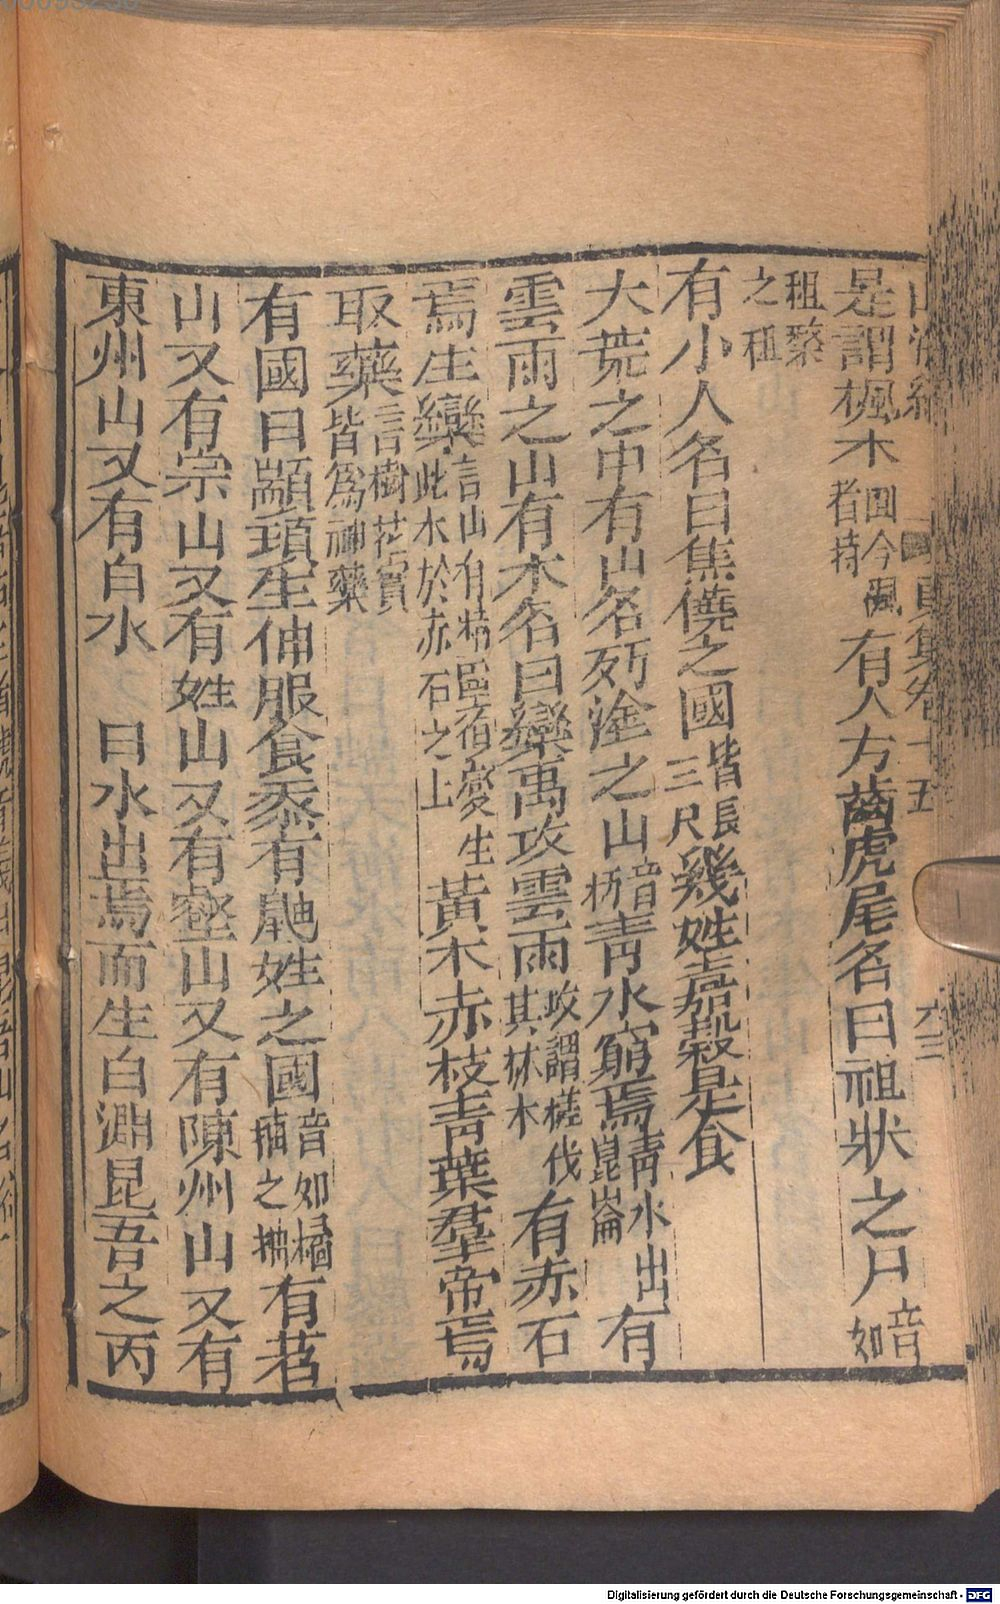 是謂楓木即今楓香樹有人方齒虎尾名曰祖狀之尸音如
租黎之租
有小人名曰焦僥之國皆長三尺幾姓嘉穀是食
大荒之中有山名㱙塗之山音朽青水窮焉青水出崑崙有
雲雨之山有木名曰欒禹攻雲雨攻謂槎伐其林木有赤石
焉生欒言山有精靈復變生此木於赤石之上黃木赤枝青葉羣帝焉
取藥言樹花實皆爲神藥
有國曰顓頊生伯服食黍有鼬姓之國音如橘柚之柚有苕
山又有宗山又有姓山又有壑山又有陳州山又有
東州山又有白水 曰水出焉而生白淵昆吾之丙
Digitalisierung gefördert durch die Deutsche Forschungsgemeinschaft - DFG